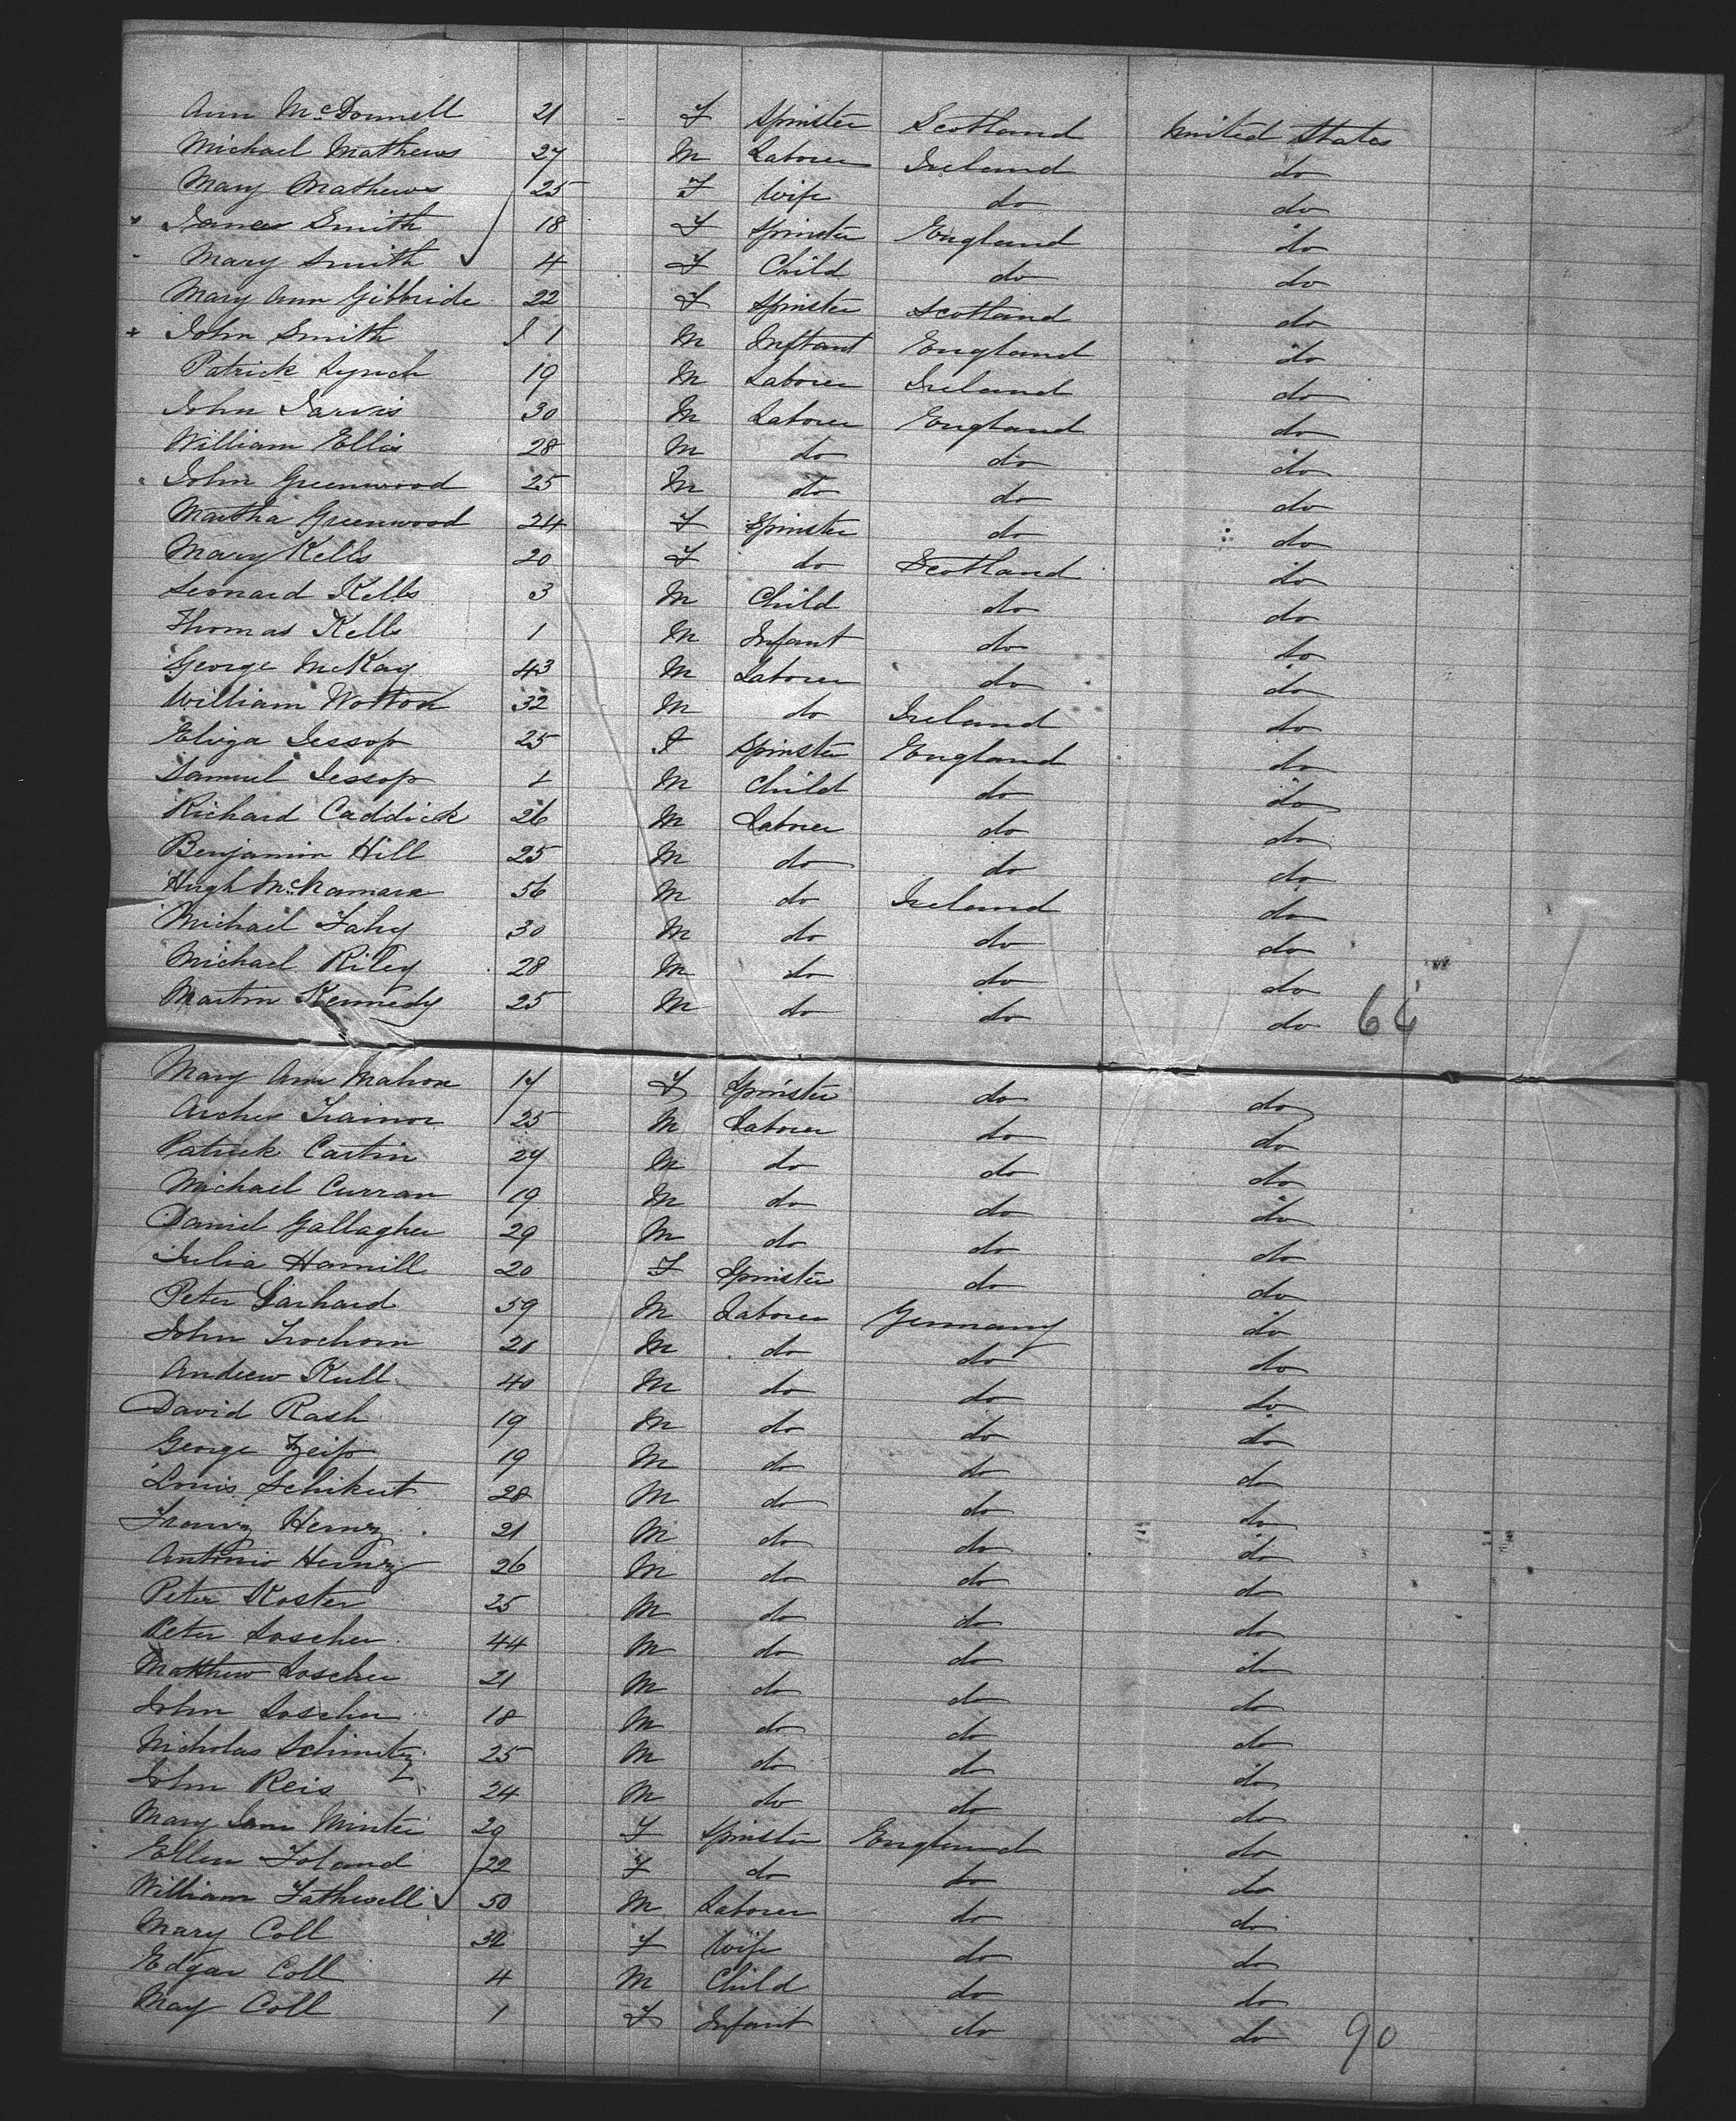 Ann McDonnell 21 F Spinster Scotland United States
Michael Mathews 27 M Laborer Ireland do
Mary Mathews 25 F Wife do do
James Smith 18 F Spinster England do
Mary Smith 4 F Child do do
Mary Ann Gilbride 22 F Spinster Scotland do
John Smith 1 M Infant England do
Patrick Lynch 19 M Laborer Ireland do
John Jarvis 30 M Laborer England do
William Ellis 28 M do do do
John Greenwood 25 M do do do
Martha Greenwood 24 F Spinster do do
Mary Kells 20 F do Scotland do
Leonard Kells 3 M Child do do
Thomas Kells 1 M Infant do do
George McKay 43 M Laborer do do
William Wotton 32 M do Ireland do
Eliza Jessop 25 F Spinster England do
Samuel Jessop 1 M Child do do
Richard Caddick 26 M Laborer do do
Benjamin Hill 25 M do do do
Hugh McNamara 56 M do Ireland do
Michael Fahy 30 M do do do
Michael Riley 28 M do do do
Martin Kennedy 25 M do do do 64
Mary Ann Mahon 17 F Spinster do do
Archer Trainor 25 M Laborer do do
Patrick Cartin 27 M do do do
Michael Curran 19 M do do do
Daniel Gallagher 29 M do do do
Julia Hamill 20 F Spinster do do
Peter 59 M Laborer Germany do
John Trochom 20 M do do do
Andrew Kull 40 M do do do
David Rash 19 M do do do
George Zeiss 19 M do do do
Louis Schikut 28 M do do do
Franz Hemz 21 M do do do
Antonio Hemz 26 M do do do
Peter Koster 25 M do do do
Peter Loscher 44 M do do do
Matthew Loscher 21 M do do do
John Loscher 18 M do do do
Nicholas Schimetz 25 M do do do
John Reis 24 M do do do
Mary Jane Minter 29 F Spinster England do
Ellen Toland 22 F do do do
William Tathwell 50 M Laborer do do
Mary Coll 32 F Wife do do
Edgar Coll 4 M Child do do
May Coll 1 F Infant do do 90